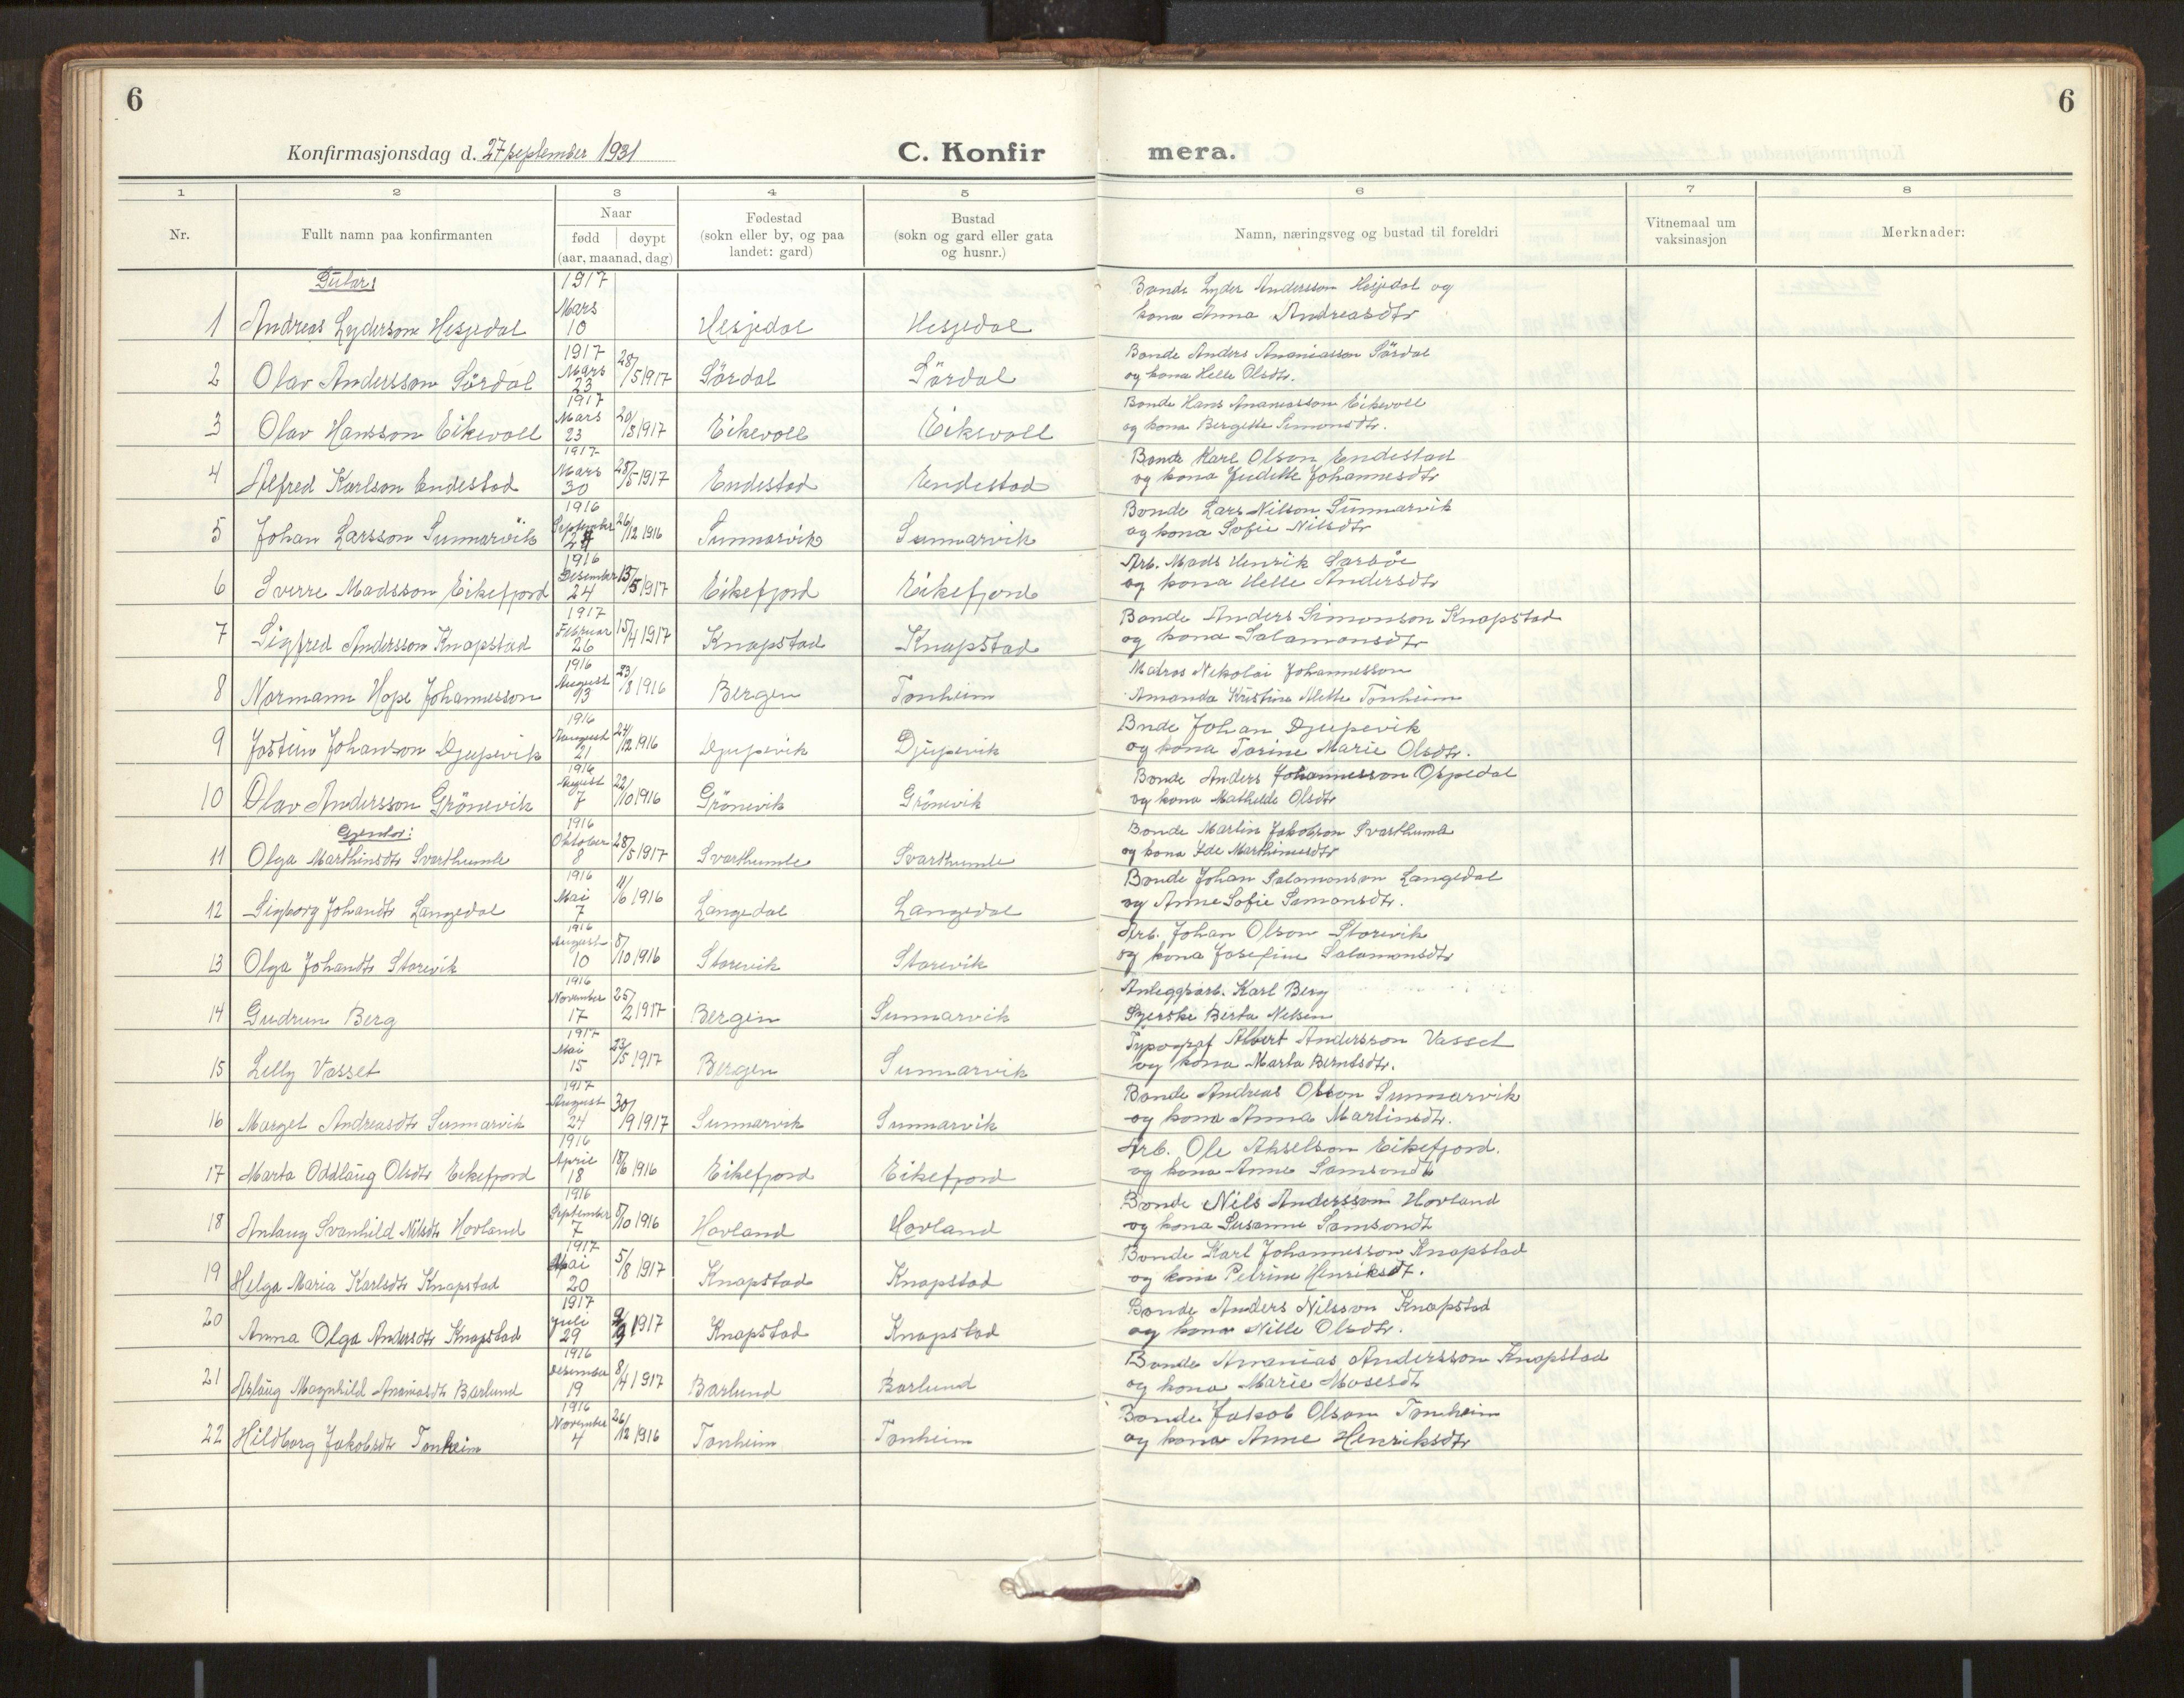 6
6
Konfirmasjonsdag d. 27 september 1931
C. Konfir mera.
1 2 3 4 5 6 7 8
Nr.
Fullt namn paa konfirmanten
Naar
fødd | døypt
(aar, maanad, dag)
Fødestad
(sokn eller by, og paa
landet: gard)
Bustad
(sokn og gard eller gata
og husnr.)
Namn, næringsveg og bustad til foreldri
Vitnemaal um
vaksinasjon
Merknader:
Gutar:
1 Andreas Lyderson Hesjedal 1917 Mars 10 Hesjedal Hesjedal Bonde Lyder Andersson Hesjedal og
kona Anna Andreasdtr
2 Olav Andersson Sördal 1917 Mars 23 28/5 1917 Sördal Sördal Bonde Anders Ananiasson Sördal
og kona Helle Olsdtr.
3 Olav Hansson Eikevoll 1917 Mars 23 20/5 1917 Eikevoll Eikevoll Bonde Hans Ananiasson Eikevoll
og kona Bergette Simonsdtr.
4 Alfred Karlson Endestad 1917 Mars 30 28/5 1917 Endestad Endestad Bonde Karl Olson Endestad
og kona Juditte Johannesdtr
5 Johan Larsson Sunnarvik 1916 September 26/12 1916 Sunnarvik Sunnarvik Bonde Lars Nilson Sunnarvik
og kona Sofie Nilsdtr
6 Sverre Madsson Eikefjord 1916 Desember 24 13/5 1917 Eikefjord Eikefjord Arb. Mads Henrik
og kona Helle Andersdtr
7 Sigfred Andersson Knapstad 1917 Februar 26 15/4 1917 Knapstad Knapstad Bonde Anders Simonson Knapstad
og kona Salamonsdtr
8 Normann Hope Johannesson 1916 August 13 23/8 1916 Bergen Tonheim Matros Nikolai Johannesson
Amanda Kristine Mette Tonheim
9 Jostein Johanson Djupevik 1916 August 21 24/12 1916 Djupevik Djupevik Bnde Johan Djupevik
og kona Torine Marie Olsdtr.
10 Olav Andersson Grönevik 1916 August 7 22/10 1916 Grönevik Grönevik Bonde Anders Johannesson Ospedal
og kona Mathilde Olsdtr
Gjentor:
11 Olga Marthinsdtr Svarthumle 1916 Oktober 8 28/5 1917 Svarthumle Svarthumle Bonde Martin Jakobson Svarthumle
og kona Ide Marthinusdtr
12 Sigborg Johandtr Langedal 1916 Mai 7 11/6 1916 Langedal Langedal Bonde Johan Salamonson Langedal
og Anne Sofie Simonsdtr.
13 Olga Johandtr Storevik 1916 August 10 8/10 1916 Storevik Storevik Arb. Johan Olson Storevik
og kona Josefine Salamonsdtr
14 Gudrun Berg 1916 November 17 25/2 1917 Bergen Sunnarvik Anleggsarb. Karl Berg
Syerske Berta Nelsen
15 Lelly Vasset 1917 Mai 15 23/5 1917 Bergen Sunnarvik Typograf Albert Andersson Vasset
og kona Marta Berntsdtr.
16 Marget Andreasdtr Sunnarvik 1917 August 24 30/9 1917 Sunnarvik Sunnarvik Bonde Andreas Olson Sunnarvik
og kona Anna Martinsdtr.
17 Marta Oddlaug Olsdtr Eikefjord 1916 April 18 18/6 1916 Eikefjord Eikefjord Arb. Ole Akselson Eikefjord.
og kona Anne Samsondtr
18 Anlaug Svanhild Nilsdtr Hovland 1916 September 7 8/10 1916 Hovland Hovland Bonde Nils Andersson Hovland
og kona Susanne Samsondt
19 Helga Maria Karlsdtr Knapstad 1917 Mai 20 5/8 1917 Knapstad Knapstad Bonde Karl Johannesson Knapstad
og kona Petrine Henriksdt.
20 Anna Olga Andersdtr Knapstad 1917 Juli 29 2/9 1917 Knapstad Knapstad Bonde Anders Nilsson Knapstad
og kona Nille Olsdtr.
21 Aslaug Magnhild Ananiasdtr Barlund 1916 Desember 19 8/4 1917 Barlund Barlund Bonde Ananias Andersson Knapstad
og kona Marie Mosesdt
22 Hildborg Jakobsdtr Tonheim 1916 November 4 26/12 1916 Tonheim Tonheim Bonde Jakob Olson Tonheim
og kona Anne Henriksdtr